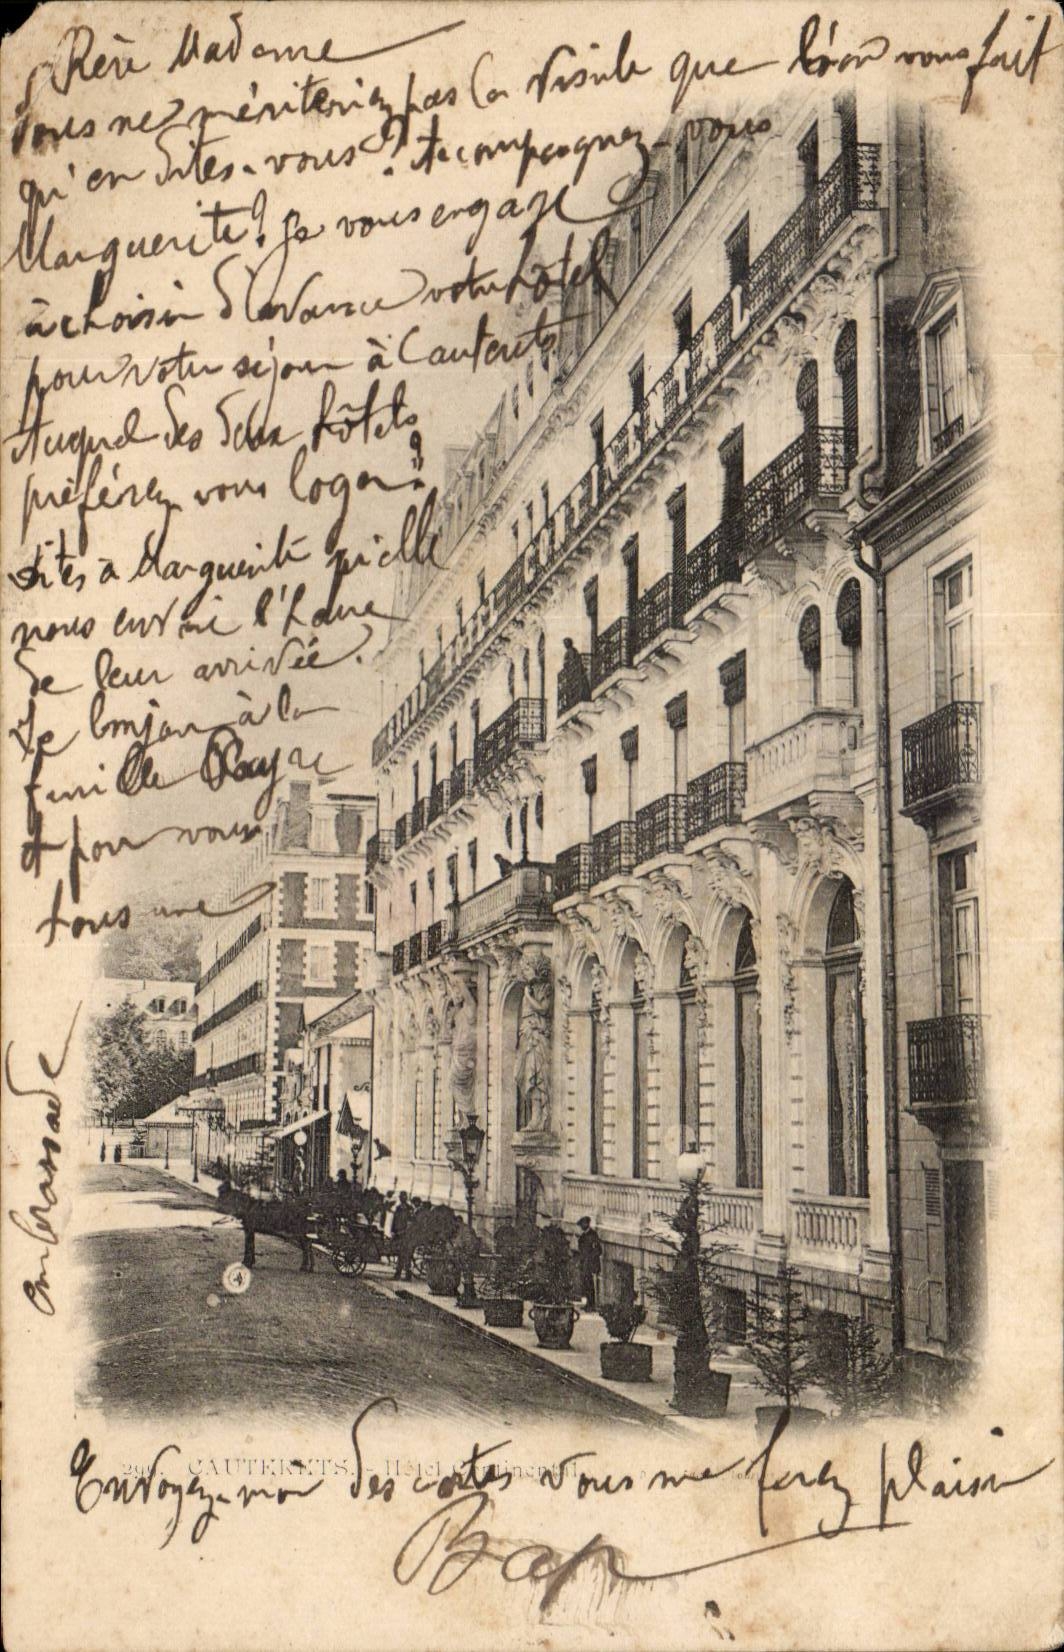 Chère Madame
vous ne mériteriez pas la visite que Léon vous fait
qu'en dites-vous? Accompagnez-vous
Marguerite? Je vous engage
à choisir d'avance votre hôtel
pour votre séjour à Cauterets
Auquel des deux hôtels
préférez-vous loger?
dites à Marguerite qu'elle
nous envoie l'heure
de leur arrivée.
le bonjour à la
famille Payre
et pour vous
tous une
embrassade
HÔTEL CONTINENTAL
CAUTERETS. - Hôtel Continental
Envoyez-moi des cartes vous me ferez plaisir
Bap